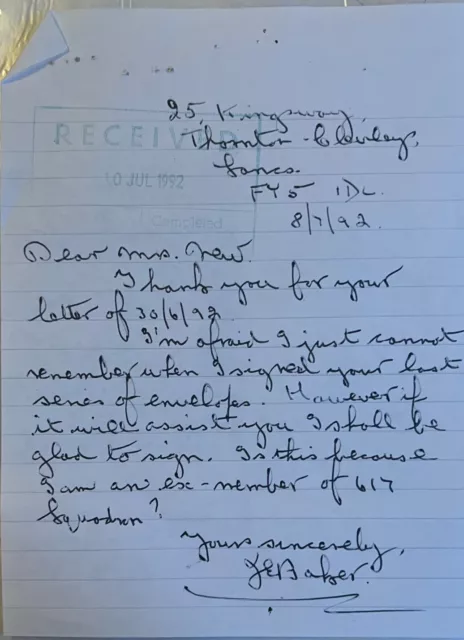 25, Kingsway,
RECEIVED
Thornton-Cleveleys,
Lancs.
10 JUL 1992
FY5 1DL.
Completed
8/7/92.
Dear Mrs. New.
Thank you for your
letter of 30/6/92
I'm afraid I just cannot
remember when I signed your last
series of envelopes. However if
it will assist you I shall be
glad to sign. Is this because
I am an ex-member of 617
Squadron?
Yours sincerely,
Baker.